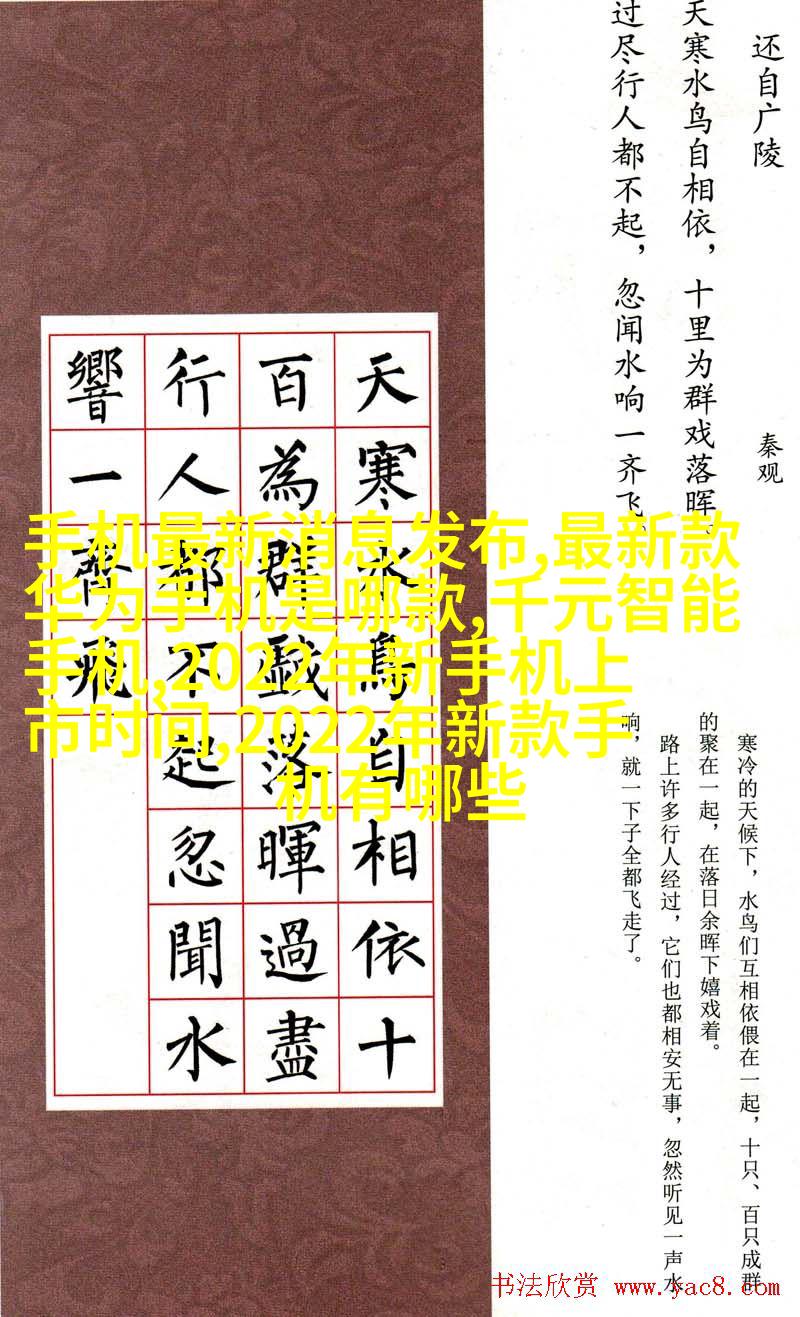 还自广陵
秦观
天寒水鸟自相依，十里为群戏落晖、
过尽行人都不起，忽闻水响一齐飞。
天寒水鳥自相依十
百為群戲落暉過盡
行人都不起忽聞水
響一齊飛
手机最新消息发布,最新款
华为手机是哪款,千元智能
手机,2022年新手机上
市时间,2022年新款手
机有哪些
寒冷的天候下，水鸟们互相依偎在一起，十只、百只成群
的聚在一起，在落日余晖下嬉戏着。
路上许多行人经过，它们也都相安无事，忽然听见一声水
响，就一下子全都飞走了。
书法欣赏 www.yac8.com